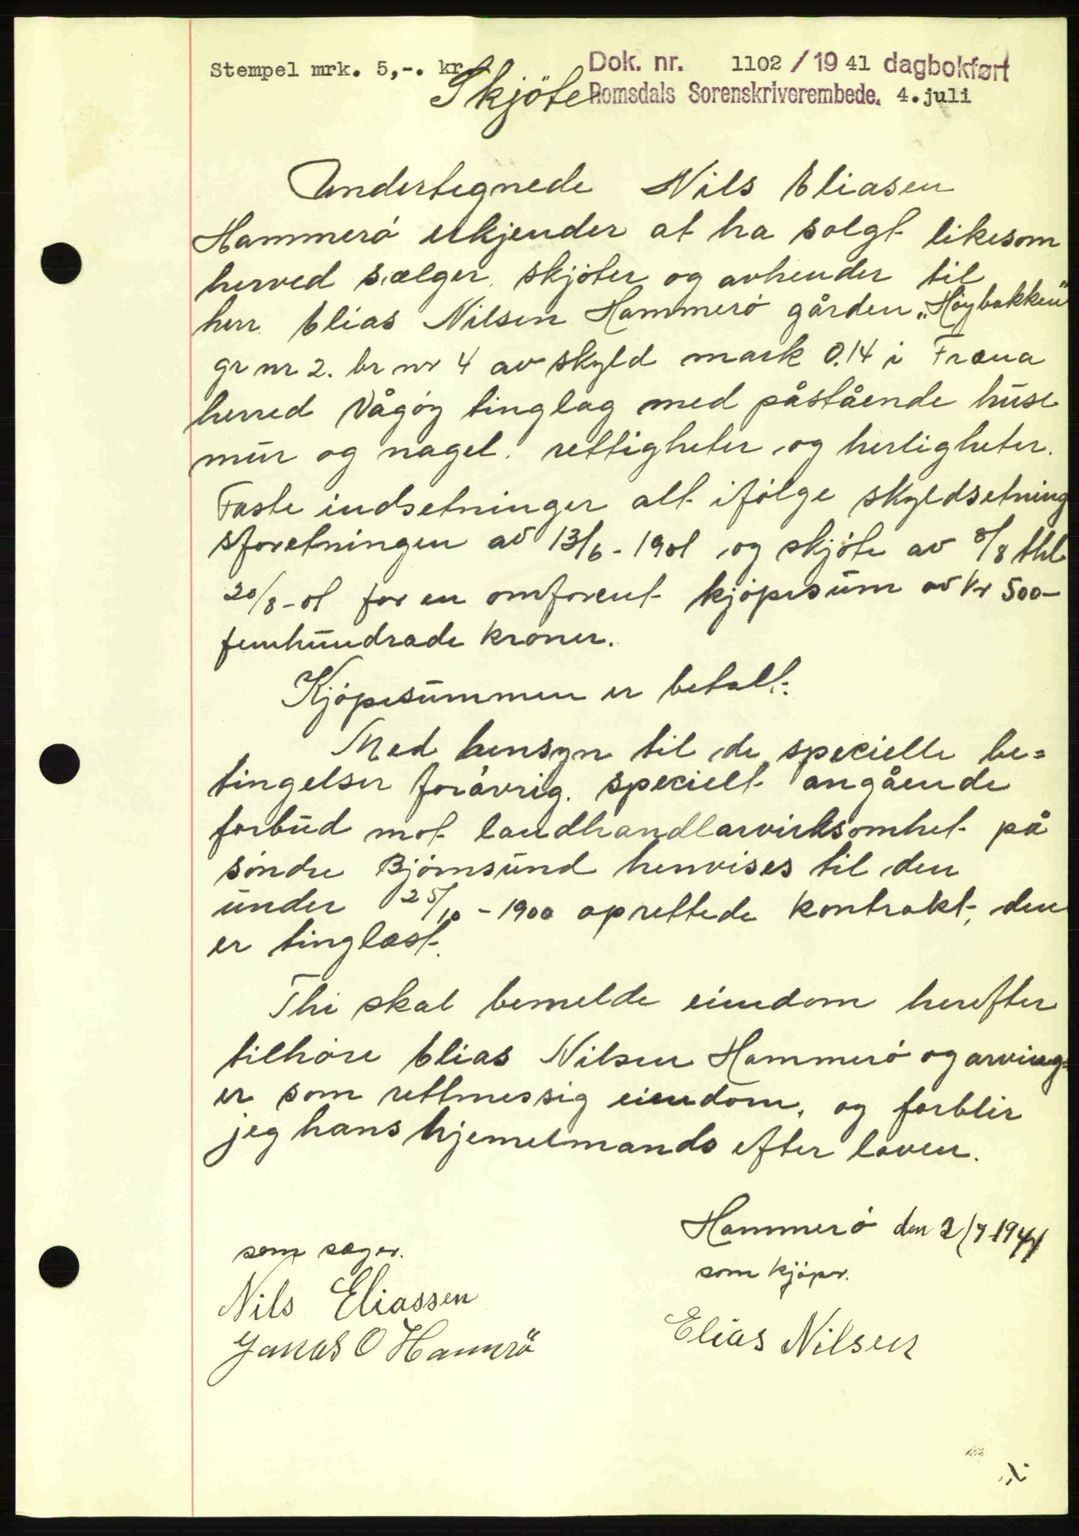 Stempel mrk. 5,-. kr.
Dok. nr. 1102 / 19 41 dagbokført
Skjöte Romsdals Sorenskriverembede. 4. juli
Undertegnede Nils Eliasen
Hammerö erkjender at ha solgt likesom
herved sælger, skjöter og avhender til
herr. Elias Nilsen Hammerö gården „Höybakken"
gr nr 2. br nr 4 av skyld mark 0.14 i Fræna
herred Vågöy tinglag med påstående huse
mur og nagel, rettigheter og herligheter.
Faste indsetninger alt ifölge skyldsetning
sforetningen av 13/6 - 1901, og skjöte av /8 thl
20/8 - 01 for en omforent kjöpesum av kr 500 -
femhundrade kroner.
Kjöpesummen er betalt.
Med hensyn til de specielle be=
tingelser foråvrig. specielt angående
forbud mot landhandlarvirksomhet på
söndre Björnsund henvises til den
under 25/10 - 1900 oprettede kontrakt, den
er tinglæst.
Thi skal bemelde eiendom herefter
tilhöre Elias Nilsen Hammerö og arving
er som rettmessig eiendom, og forblir
jeg hans hjemelmands efter loven.
Hammerö den 2/7 1941
som sæger.
som kjöper.
Nils Eliassen
Elias Nilsen
Jonas O Hamrö